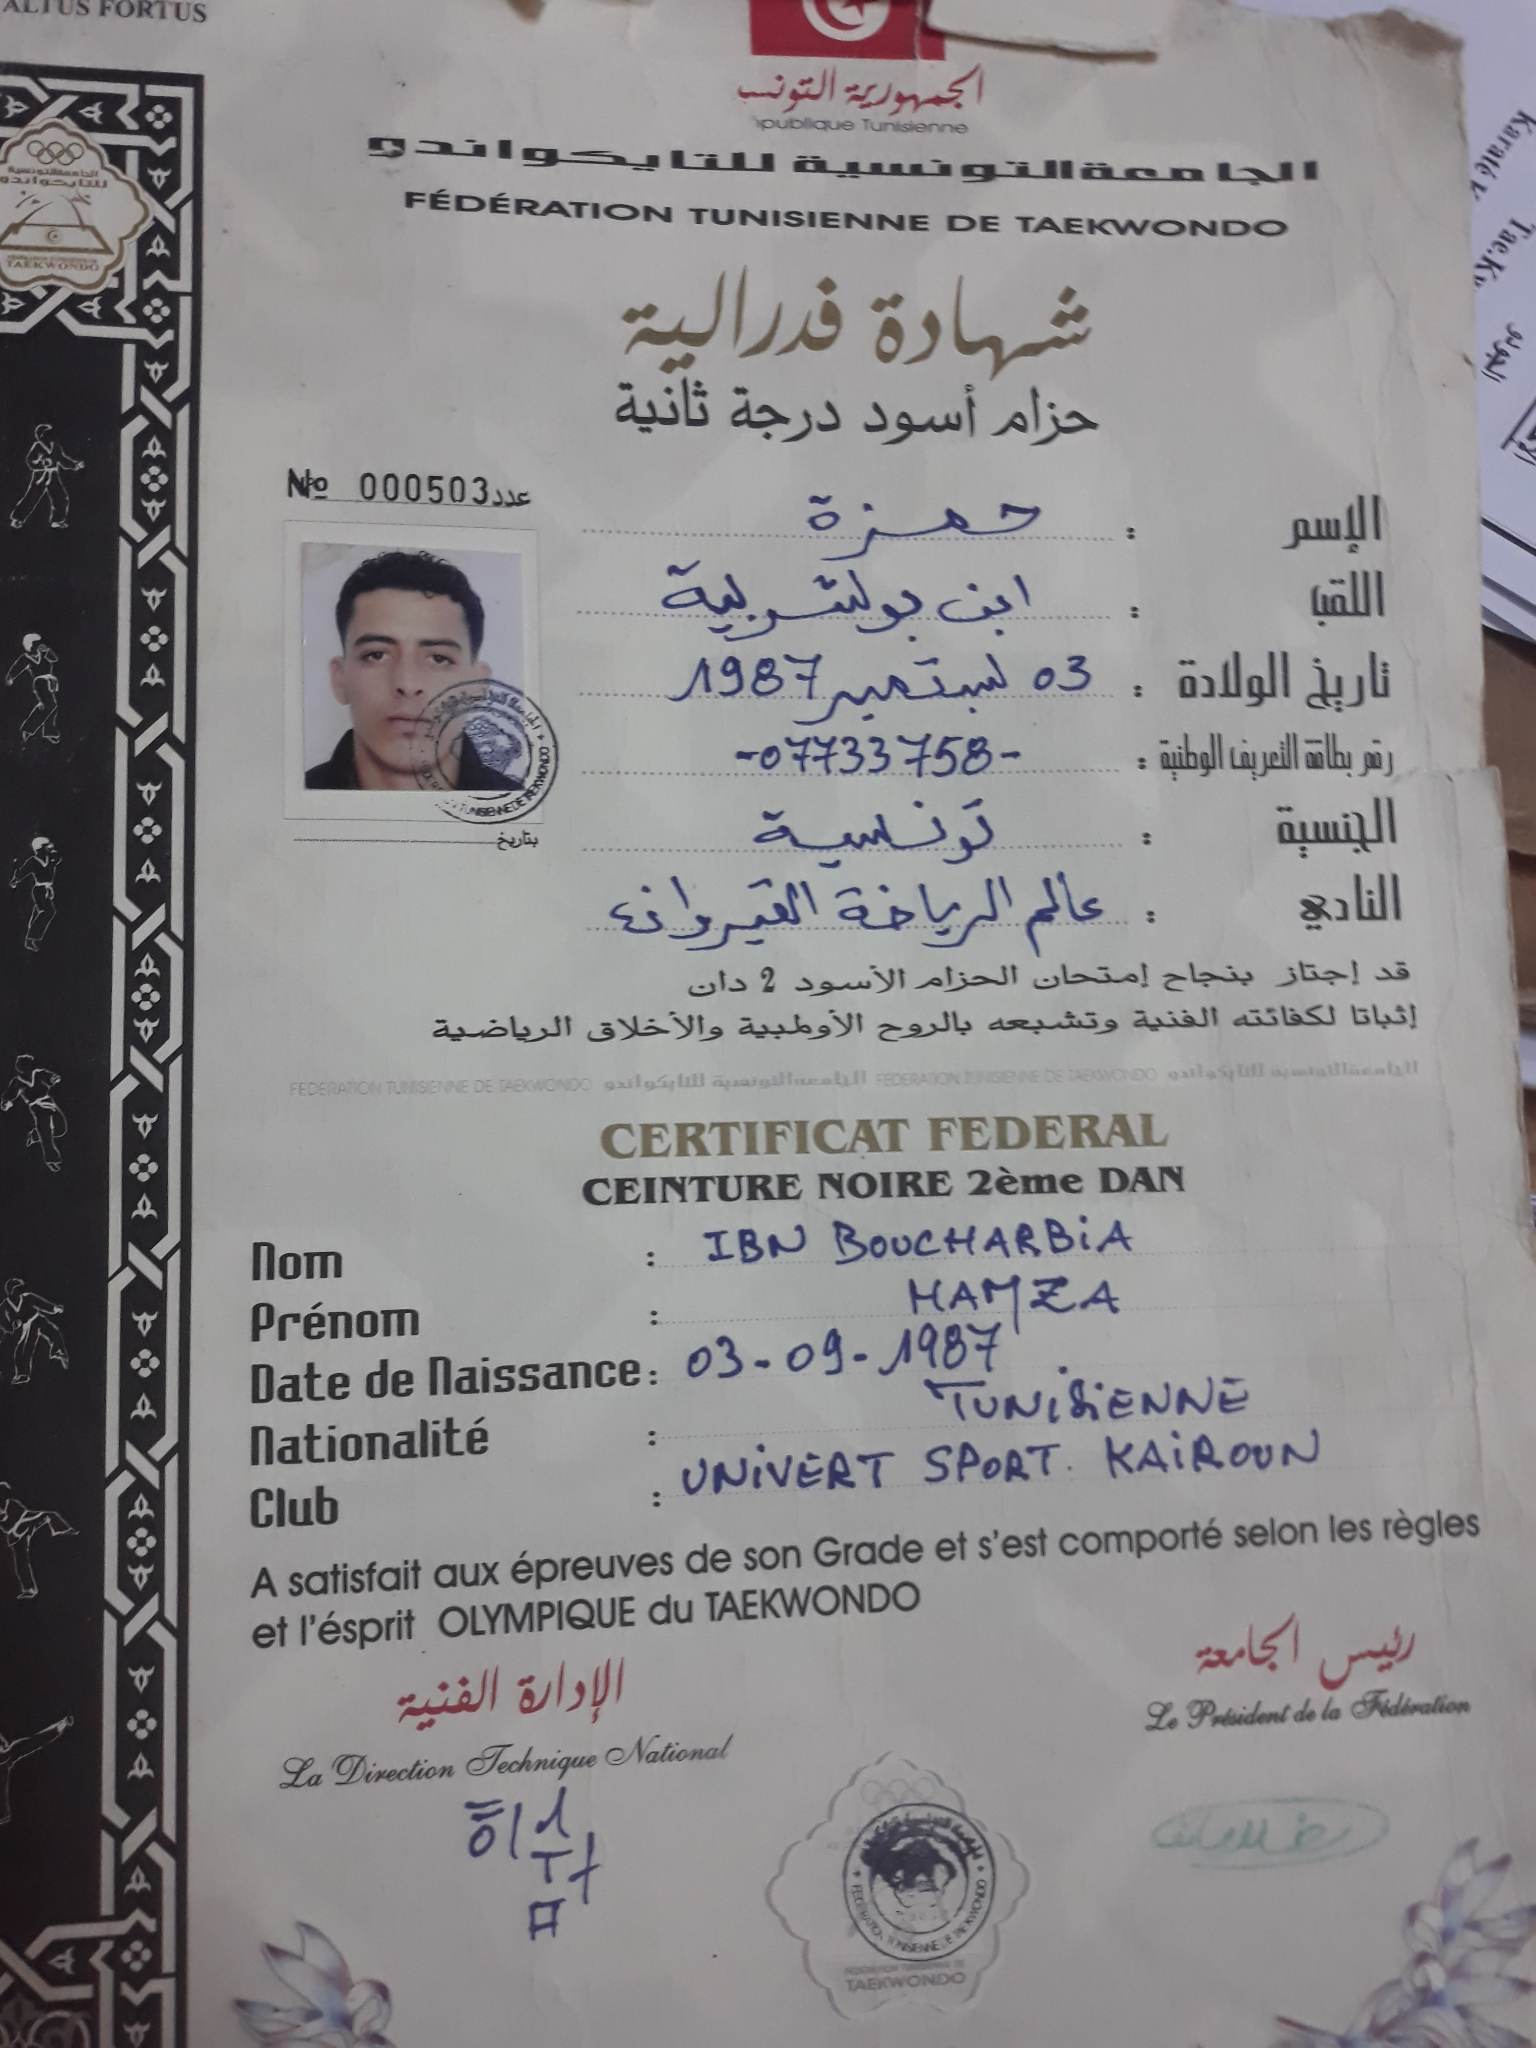 ALTUS FORTUS
الجمهورية التونسـ
publique Tunisienne
الجامعة التونسية للتايكواندو
FÉDÉRATION TUNISIENNE DE TAEKWONDO
شهادة فدرالية
حزام أسود درجة ثانية
Nº 000503 عدد
الإسم : حمزة
اللقب : ابن بوشربية
تاريخ الولادة : 03 سبتمبر 1987
رقم بطاقة التعريف الوطنية : -07733758-
الجنسية : تونسية
بتاريخ
النادي : عالم الرياضة القيروان
قد إجتاز بنجاح إمتحان الحزام الأسود 2 دان
إثباتا لكفائته الفنية وتشبعه بالروح الأولمبية والأخلاق الرياضية
FEDERATION TUNISIENNE DE TAEKWONDO الجامعة التونسية للتايكواندو FEDERATION TUNISIENNE DE TAEKWONDO الجامعة التونسية للتايكواندو
CERTIFICAT FEDERAL
CEINTURE NOIRE 2ème DAN
Nom : IBN BOUCHARBiA
Prénom : HAMZA
Date de Naissance : 03-09-1987
Nationalité : TUNiSiENNE
Club : UNiVERT SPORT. KAiROUN
A satisfait aux épreuves de son Grade et s'est comporté selon les règles
et l'ésprit OLYMPIQUE du TAEKWONDO
الإدارة الفنية
La Direction Technique National
رئيس الجامعة
Le Président de la Fédération
FEDERATION TUNISIENNE DE TAEKWONDO
TAEKWONDO
الجامعة التونسية
للتايكواندو
TAEKWONDO
Karaté
Tae.Kw